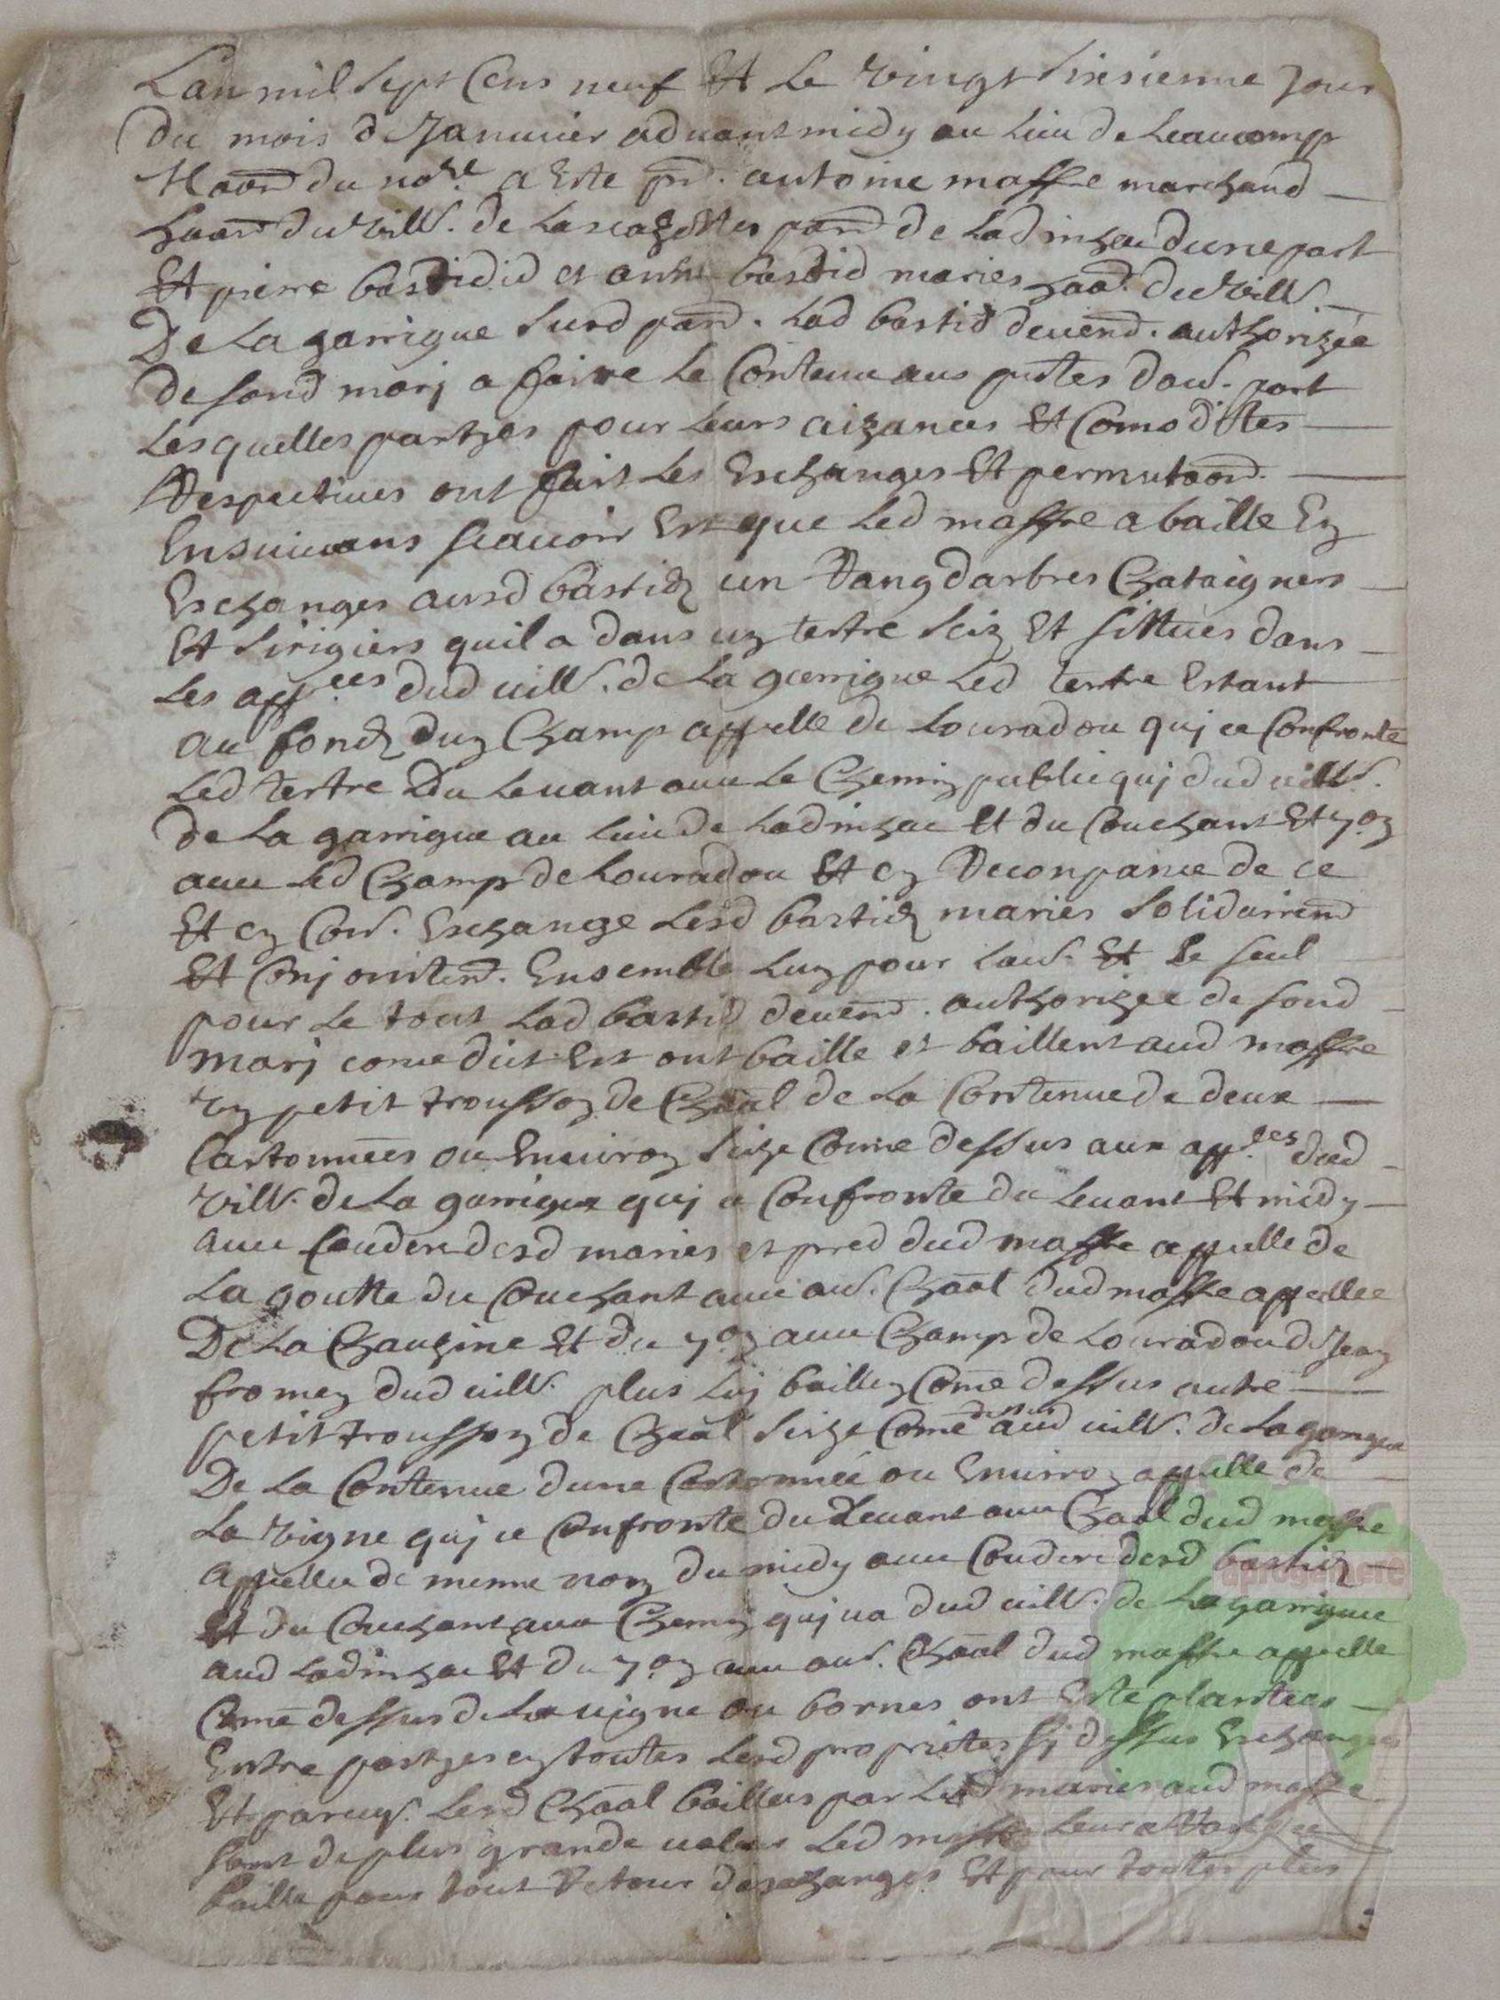 Lan mil sept Cens neuf Et Le vingt sixsieme Jour
du mois de Januier aduant midy au lieu de Leaucamp
maon du nore a Este pnt. antoine maffre marchand
haant du vill. de Lascazottes parr de Ladinhac dune part
Et pierre bastidid et anne bastid maries haant du vill.
De La garrigue susd parr. Lad bastid deuemt. authorizée
de sond marj a faire Le Contenu aus pntes dau. part
Lesquelles partyes pour leurs aizances Et Comodittes
Respectiues ont fait Les Eschanges Et permutaon
Ensuiuans scauoir Est que Led maffre a baille En
Eschanges ausd bastidz un Rang darbres Chataigners
Et sirigiers quil a dans un tertre seiz Et sittues dans
Les appces dud vill. de La garrigue Led tertre Estant
au fondz dun Champ appelle de Louradou quj ce Confronte
Led tertre Du Leuant auec Le Chemin public quj dud vill.
de La garrigue au lieu de Ladinhac Et du Couchant Et
auec Led Champ de Louradou Et en Recompance de ce
Et en Con. Eschange Lesd bastidz maries solidairemt
Et Conjointemt. Ensemble Lun pour Lau. Et Le seul
pour Le tout Lad bastid deuemt. authorizee de sond
marj come dit Est ont baille et baillent aud maffre
un petit trousson de Chaal de La Contenue de deux
Cartonnees ou Enuiron size Come dessus aux appces dud
vill. de La garrigue quj ce Confronte du Leuant Et midy
auec Couderc desd maries et pred dud maffre appelle de
La goutte du Couchant auec au. Chaal dud maffre appellee
De La Chauzine Et du auec Champ de Louradou de Jean
fromen dud vill. plus luj baillen Come dessus autre
petit troussson de Chaal sizse Come dessus aud vill. de La garrigue
De La Contenue dune Cartonnée ou Enuiron appelle de
La vigne quj ce Confronte du Leuant auec Chaal dud maffre
appellee de mesme nom du midy auec Couderc desd bastidz
Et du Couchant auec Chemin quj va dud vill. de La garrigue
aud Ladinhac Et du auec au. Chaal dud maffre appelle
Come dessus de La vigne ou bornes ont Este plantees
Entre partyes en toutes Lesd proprietes sj dessus Eschangees
Et Lesd Chaal bailles par Lesd maries aud maffre
sont de plus grande valeur Led maffre Leur a
baille pour tout Retour deschanges Et pour toutes plus
aprogemere